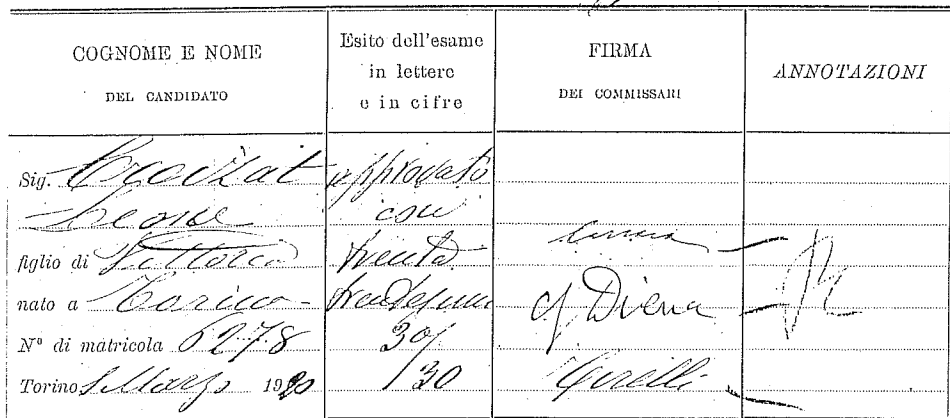 COGNOME E NOME
DEL CANDIDATO
Esito dell'esame
in lettere
e in cifre
FIRMA
DEI COMMISSARI
ANNOTAZIONI
Sig. Croizat
Leone
figlio di Vittorio
nato a Torino -
N° di matricola 6278
Torino, 1 Marzo 1920
approvato
con
trenta
trentesimi
30/
/30
Diena
Cirelli